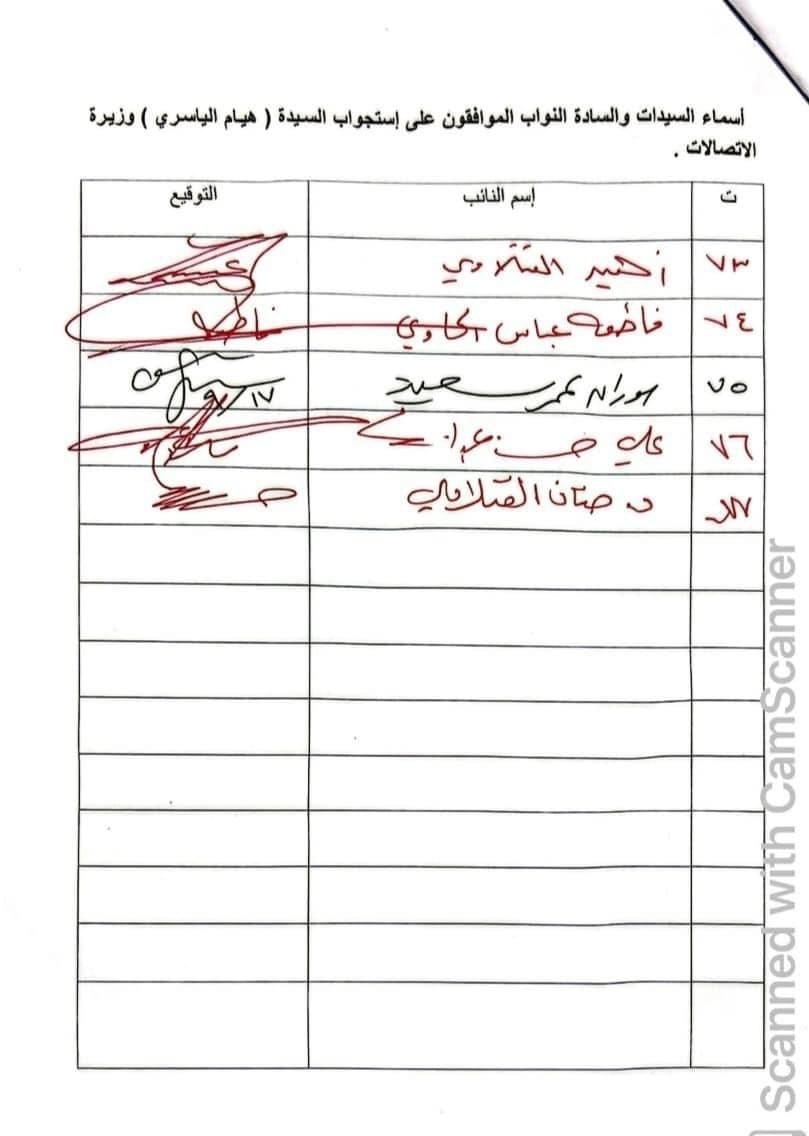 أسماء السيدات والسادة النواب الموافقون على إستجواب السيدة ( هيام الياسري ) وزيرة
الاتصالات .
ت إسم النائب التوقيع
٧٣ زهير الفتلاوي
٧٤ فاطمة عباس
٧٥ سوران عمر سعيد
١٧/٩
٧٦ علي
٧٧ د. حنان الفتلاوي
Scanned with CamScanner